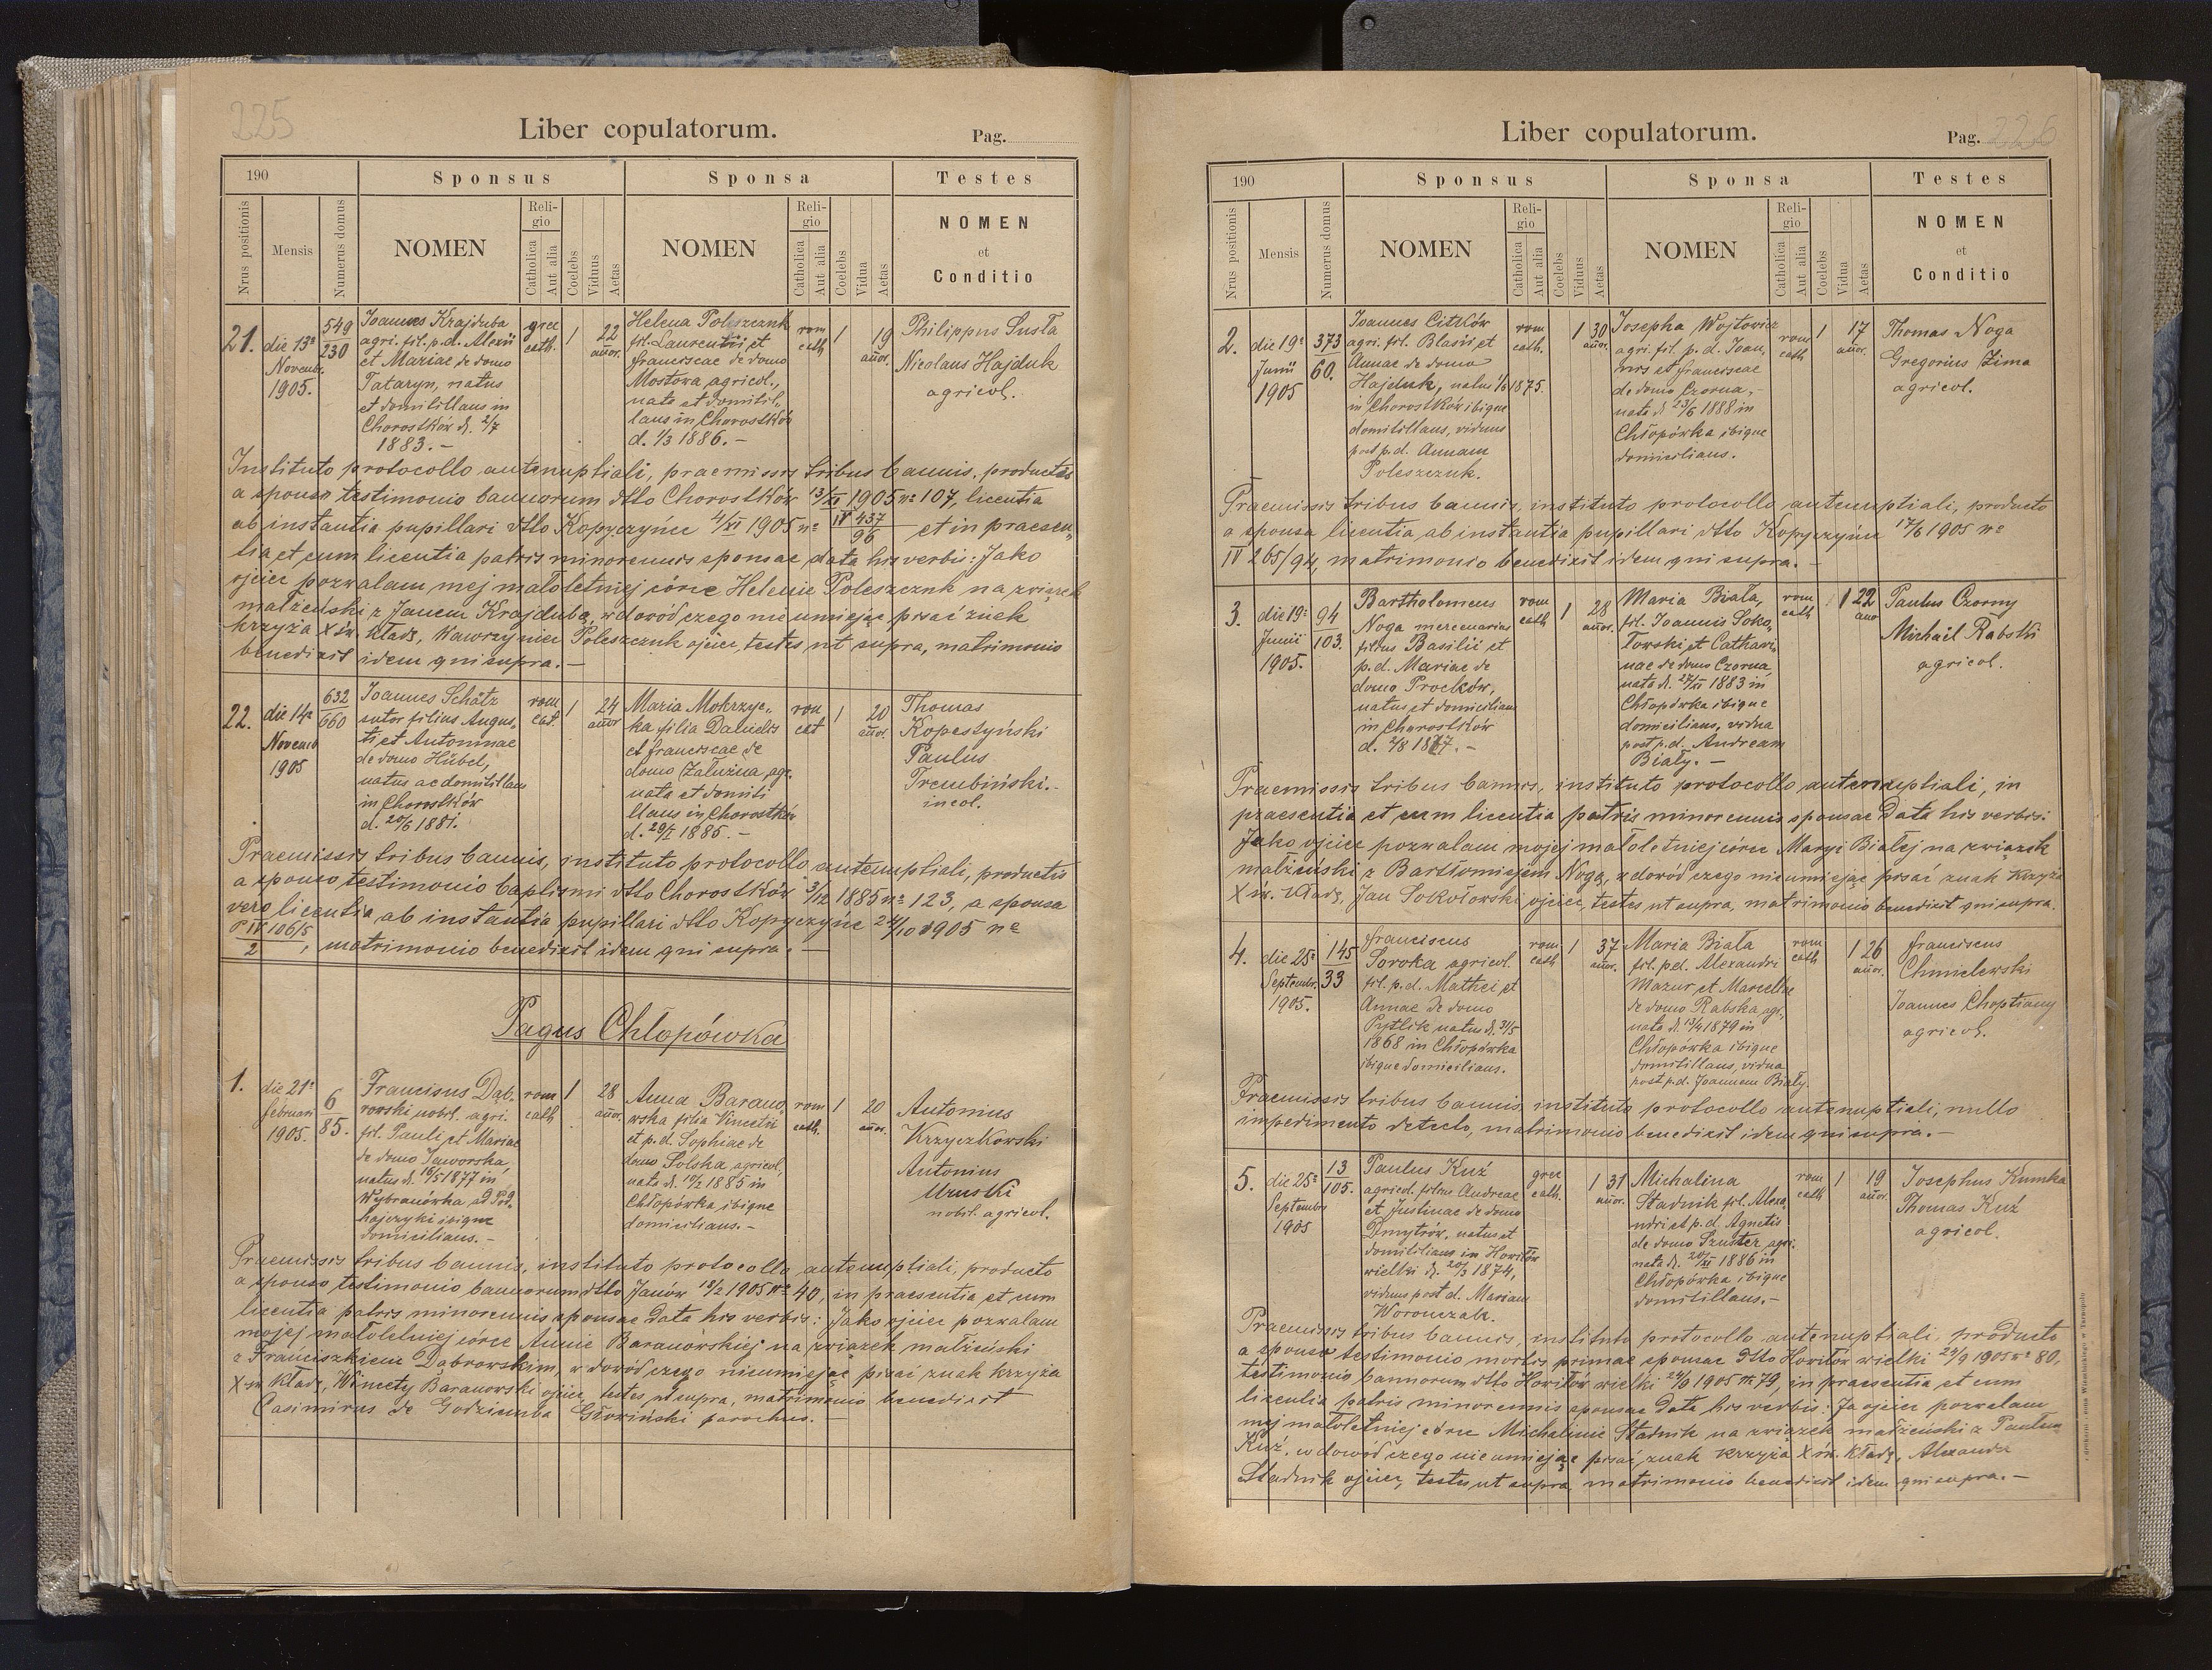 225
Liber copulatorum.
Pag.
190
Sponsus
Sponsa
Testes
Nrus positionis
Mensis
Numerus domus
NOMEN
Religio
Catholica
Aut alia
Coelebs
Viduus
Aetas
NOMEN
Religio
Catholica
Aut alia
Coelebs
Vidua
Aetas
NOMEN
et
Conditio
21.
die 13ª
Novembr.
1905.
549
230
Joannes Krajduba
agri. fil. p. d. Alexii
et Mariae de domo
Tataryn, natus
et domicilians in
Chorostków d. 2/7
1883. -
grec
cath.
1
22
annor.
Helena Poleszczuk
fil. Laurentii et
Franciscae de domo
Mostowa, agricol.,
nata et domicil„
ians in Chorostków
d. 1/3 1886. -
rom
cath
1
19
annor.
Philippus Susła
Nicolaus Hajduk
agricol.
Instituto protocollo antenuptiali, praemissis tribus bannis, productis
a sponso testimonio bannorum dtto Chorostków 13/XI 1905 nº 107, licentia
ab instantia pupillari dtto Kopyczyńce 4/XI 1905 nº IV 437/96 et in praesen„
tia et cum licentia patris minorennis sponsae data his verbis: Jako
ojciec pozwalam mej małoletniej córce Helenie Poleszczuk na związek
małżeński z Janem Krajdubą, w dowód czego nieumiejąc pisać znak
krzyża X św. kładę, Wawrzyniec Poleszczuk ojciec, testes ut supra, matrimonio
benedixit idem qui supra. -
22.
die 14ª
Novemb
1905
632
660
Joannes Schätz
sutor filius Augus„
ti et Antoninae
de domo Hübel,
natus ac domicilians
in Chorostków
d. 20/6 1881.
rom
cat.
1
24
annor
Maria Mokrzyc„
ka filia Danielis
et Franciscae de
domo Załużna, agr.
nata et domici
lians in Chorostków
d. 29/I 1885. -
rom
cat
1
20
annor.
Thomas
Kopestyński
Paulus
Trembiński. -
incol.
Praemissis tribus bannis, instituto protocollo antenuptiali, productis
a sponso testimonio baptismi dtto Chorostków 3/12 1885 nº 123, a sponsa
vero licentia ab instantia pupillari dtto Kopyczyńce 24/10 1905 nº
P IV 106/5
2, matrimonio benedixit idem qui supra. -
Pagus Chłopówka
1.
die 21ª
februari
1905.
6
85.
Francisus Dąb„
rowski nobil. agri.
fil. Pauli et Mariae
de domo Jaworska,
natus d. 16/5 1877 in
Wybranówka ad Pod„
hajczyki ibique
domicilians. -
rom
cath
1
28
annor.
Anna Barano„
wska filia Vincetii
et p. d. Sophiae de
domo Solska, agricol,
nata d. 17/2 1885 in
Chłopówka ibique
domicilians. -
rom
cath.
1
20
annor.
Antonius
Krzyczkowski
Antonius
Uruski
nobil. agricol.
Praemissis tribus bannis, instituto protocollo antenuptiali, producto
a sponso testimonio bannorum dtto Janów 18/2 1905 Nº 40, in praesentia et cum
licentia patris minorennis sponsae data his verbis: Jako ojciec pozwalam
mojej małoletniej córce Annie Baranowskiej na związek małżeński
z Franciszkiem Dąbrowskim, w dowód czego nieumiejąc pisać znak krzyża
X św. kładę, Wincety Baranowski ojciec, testes ut supra, matrimonio benedixit
Casimirus de Godziemba Głowiński parochus. -
226
Liber copulatorum.
Pag.
190
Sponsus
Sponsa
Testes
Nrus positionis
Mensis
Numerus domus
NOMEN
Religio
Catholica
Aut alia
Coelebs
Viduus
Aetas
NOMEN
Religio
Catholica
Aut alia
Coelebs
Vidua
Aetas
NOMEN
et
Conditio
2.
die 19ª
Junii
1905
373
60.
Joannes Citków
agri. fil. Blasii et
Annae de domo
Hajduk, natus 1/6 1875.
in Chorostków ibique
domicilians, viduus
post p. d. Annam
Poleszczuk.
rom
cath.
1
30
annor.
Josepha Wojtowicz
agri. fil. p. d. Joan„
nis et Franciscae
de domo Czorna, -
nata d. 23/6 1888 in
Chłopówka ibique
domicilians.
rom
cath
1
17
annor.
Thomas Noga
Gregorius Zima
agricol.
Praemissis tribus bannis, instituto protocollo antenuptiali, producto
a sponsa licentia ab instantia pupillari dtto Kopyczyńce 17/6 1905 nº
IV 265/94, matrimonio benedixit idem qui supra. -
3.
die 19ª
Junii
1905.
94
103.
Bartholomeus
Noga mercenarius
filius Basilii et
p. d. Mariae de
domo Procków,
natus et domicilians
in Chorostków
d. 2/8 1877. -
rom
cath
1
28
annor.
Maria Biała,
fil. Joannis Soko„
łowski et Cathari„
nae de domo Czorna
nata d. 27/II 1883 in
Chłopówka ibique
domicilians, vidua
post p. d. Andream
Biały. -
rom
cath
1
22
anno
Paulus Czorny
Michaël Rabski
agricol.
Praemissis tribus bannis, instituto protocollo antenuptiali, in
praesentia et cum licentia patris minorennis sponsae data his verbis:
Jako ojciec pozwalam mojej małoletniej córce Maryi Białej na związek
małżeński z Bartłomiejem Nogą, w dowód czego nieumiejąc pisać znak krzyża
X św. kładę, Jan Sokołowski ojciec, testes ut supra, matrimonio benedixit qui supra.
4.
die 25ª
Septembr.
1905.
145
33
Franciscus
Soroka agricol.
fil. p. d. Mathei et
Annae de domo
Pytlik natus d. 31/5
1868 in Chłopówka
ibique domicilians.
rom
cath
1
37
annor.
Maria Biała
fil. p. d. Alexandri
Mazur et Marcellae
de domo Rabska, agr.,
nata d. 13/4 1879 in
Chłopówka ibique
domicilians, vidua
post p. d. Joannem Biały.
rom
cath
1
26
annor.
Franciscus
Chmielewski
Joannes Choptiany
agricol.
Praemissis tribus bannis, instituto protocollo antenuptiali, nullo
impedimento detecto, matrimonio benedixit idem qui supra. -
5.
die 25ª
Septembr
1905
13
105.
Paulus Kuź
agricol. filius Andreae
et Justinae de domo
Dmytrów, natus et
domicilians in Howiłów
wielki d. 20/3 1874,
viduus post d. Mariam
Woronczak.
grec
cath.
1
31
annor.
Michalina
Stadnik fil. Alexa„
ndri et p. d. Agnetis
de domo Szuster, agri.
nata d. 20/XI 1886 in
Chłopówka ibique
domicilians. -
rom
cath
1
19
annor.
Josephus Kumka
Thomas Kuź
agricol.
Praemissis tribus bannis, instituto protocollo antenuptiali, producto
a sponso testimonio mortis primae sponsae dtto Howiłów wielki 24/9 1905 nº 80,
testimonio bannorum dtto Howiłów wielki 24/9 1905 nº 79, in praesentia et cum
licentia patris minorennis sponsae data his verbis: Ja ojciec pozwalam
mej małoletniej córce Michalinie Stadnik na związek małżeński z Pawłem
Kuź, w dowód czego nieumiejąc pisać, znak krzyża X św. kładę, Alexander
Stadnik ojciec, testes ut supra, matrimonio benedixit idem qui supra. -